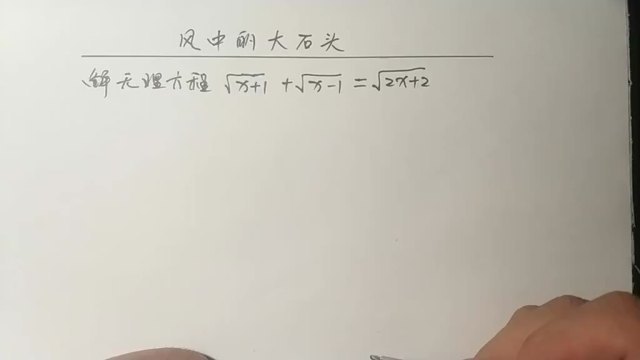 风中的大石头
解无理方程 √(x+1) + √(x-1) = √(2x+2)